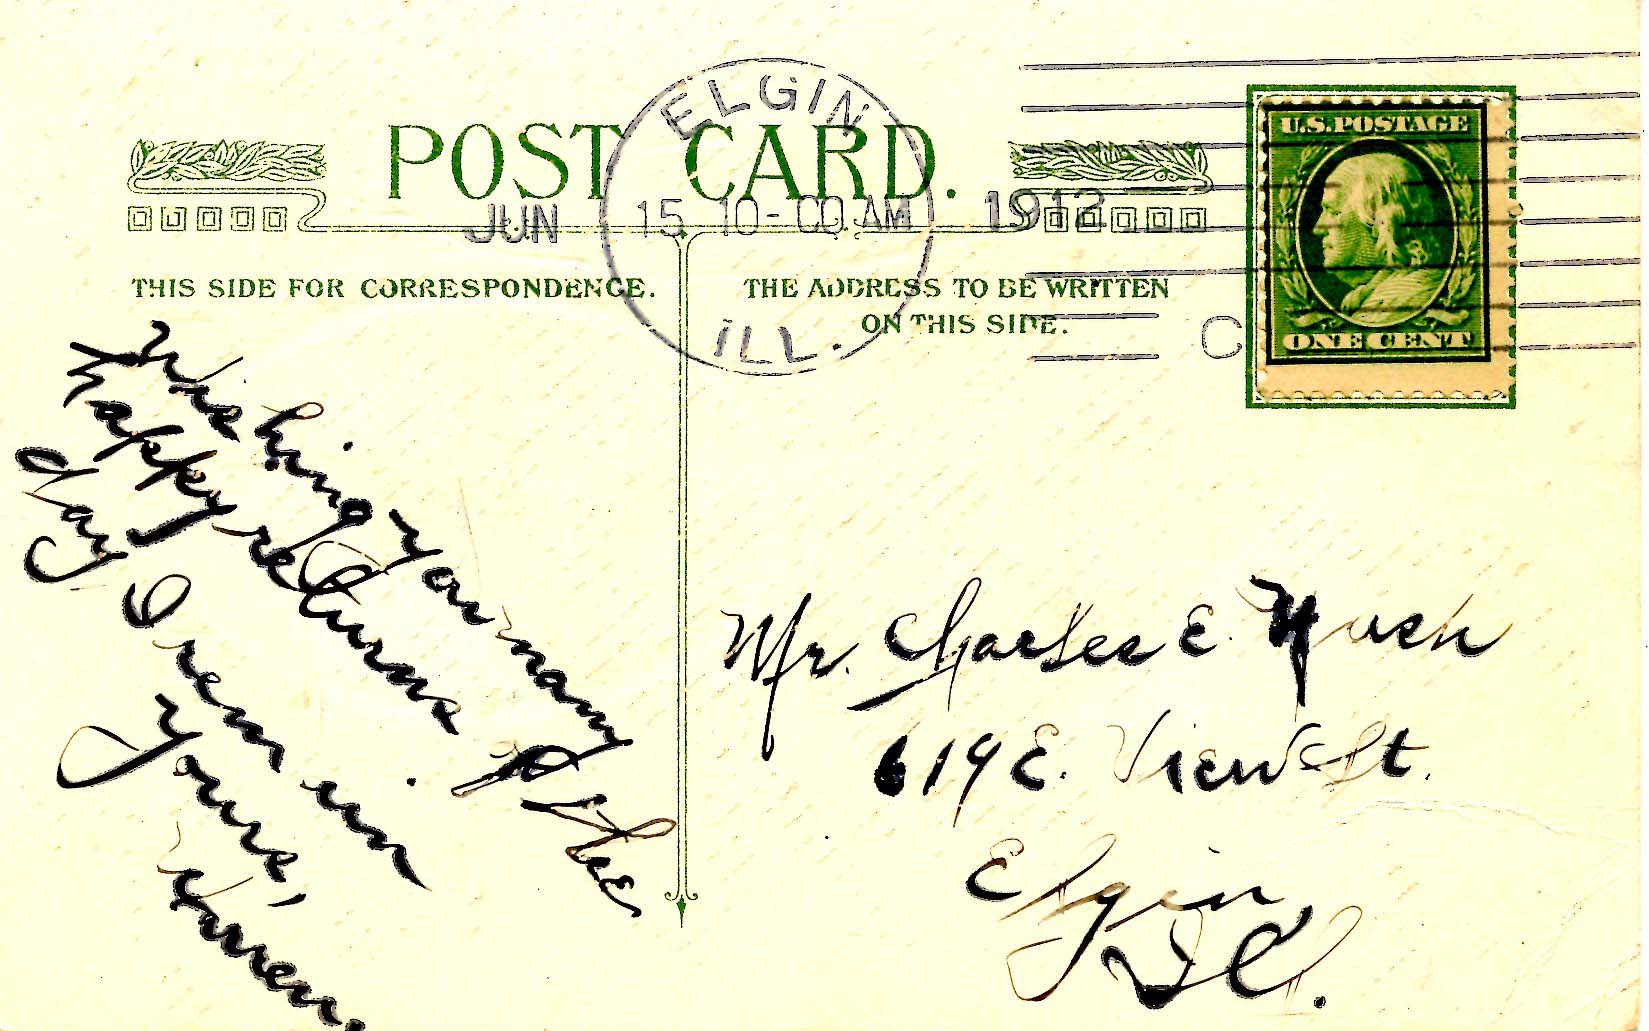 POST CARD.
ELGIN
JUN 15 10-00 AM 1912
ILL.
C
U.S. POSTAGE
ONE CENT
THIS SIDE FOR CORRESPONDENCE.
THE ADDRESS TO BE WRITTEN
ON THIS SIDE.
Wishing you many
happy returns of the
day I remain
Yours,
Warren
Mr. Charles E.
619 E. View St.
Elgin
Ill.